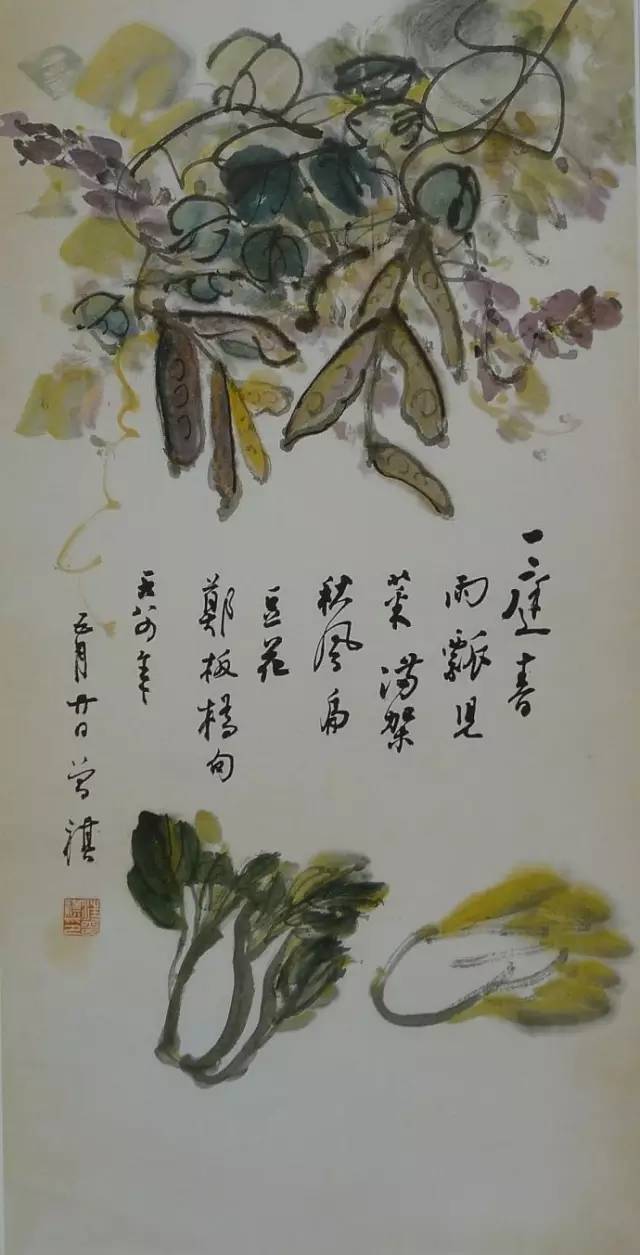 一庭春
雨瓢兒
菜滿架
秋風扁
豆花
鄭板橋句
一九八四年
五月廿日曾祺